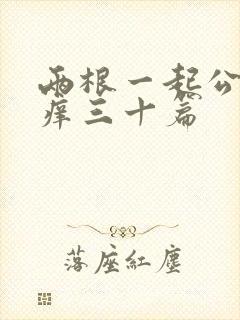 两根一起公
痒三十篇
落座紅塵